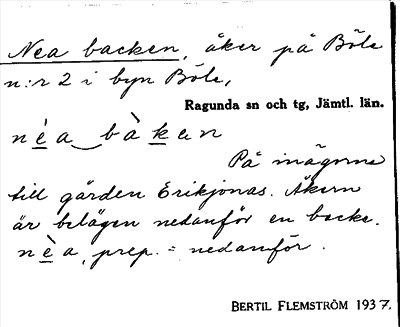 Nea backen, åker på Böle
n:r 2 i byn Böle,
Ragunda sn och tg, Jämtl. län.
nèa bàken
På inägorna
till gården Erikjonas. Åkern
är belägen nedanför en backe.
nèa, prep. = nedanför.
BERTIL FLEMSTRÖM 1937.